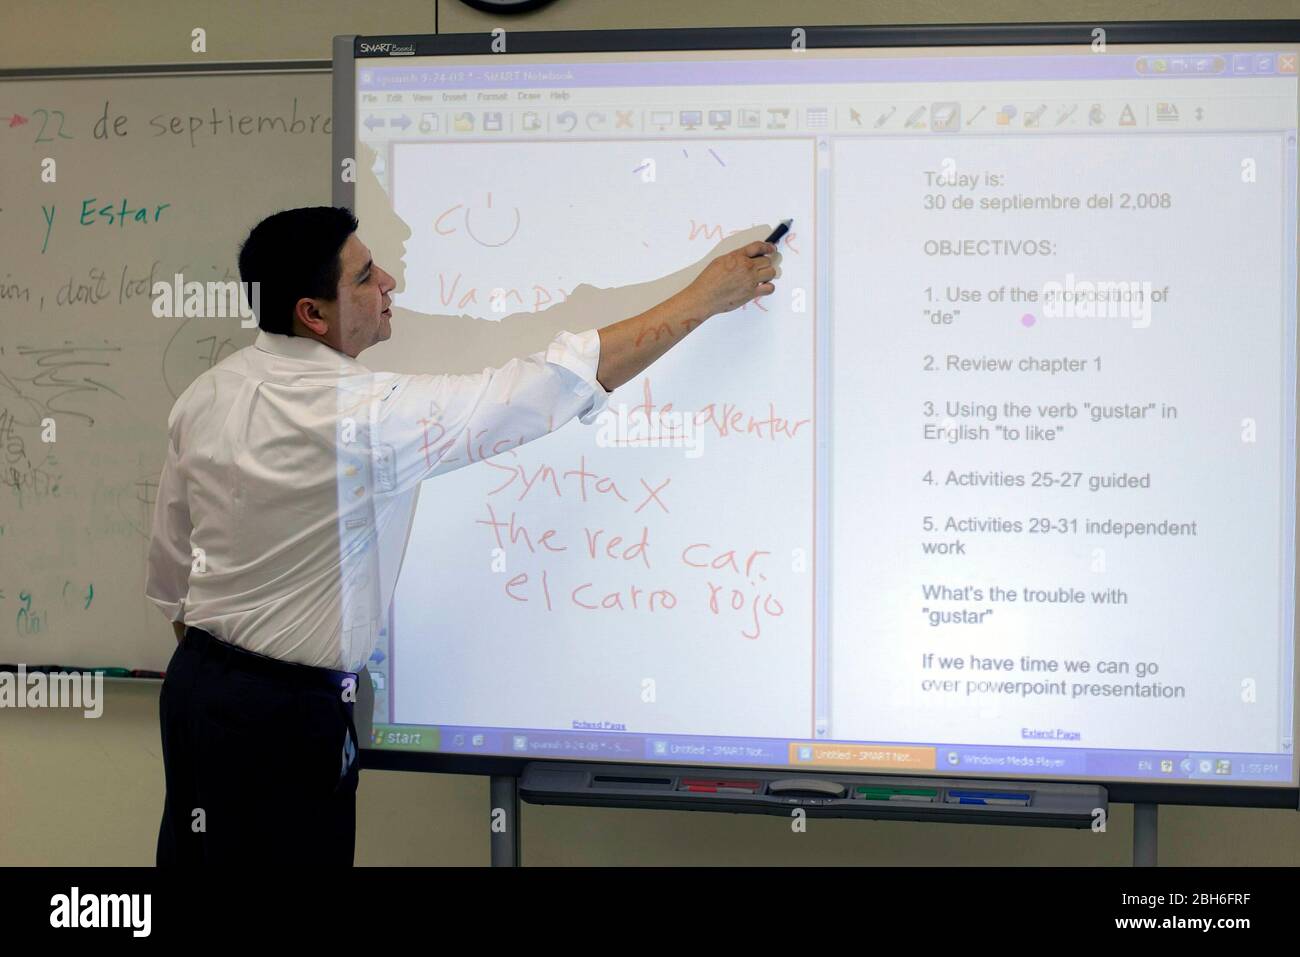 22 de septiembre
y Estar
don't look
70
SMART Board
spanish 9-24-08 * - SMART Notebook
File Edit View Insert Format Draw Help
Vampi
de aventur
Syntax
the red car.
el carro rojo
Extend Page
Today is:
30 de septiembre del 2,008
OBJECTIVOS:
1. Use of the proposition of
"de"
2. Review chapter 1
3. Using the verb "gustar" in
English "to like"
4. Activities 25-27 guided
5. Activities 29-31 independent
work
What's the trouble with
"gustar"
If we have time we can go
over powerpoint presentation
Extend Page
start
spanish 9-24-08 * - S...
Untitled - SMART Not...
Untitled - SMART Not...
Windows Media Player
EN
1:55 PM
alamy
Image ID: 2BH6FRF
www.alamy.com